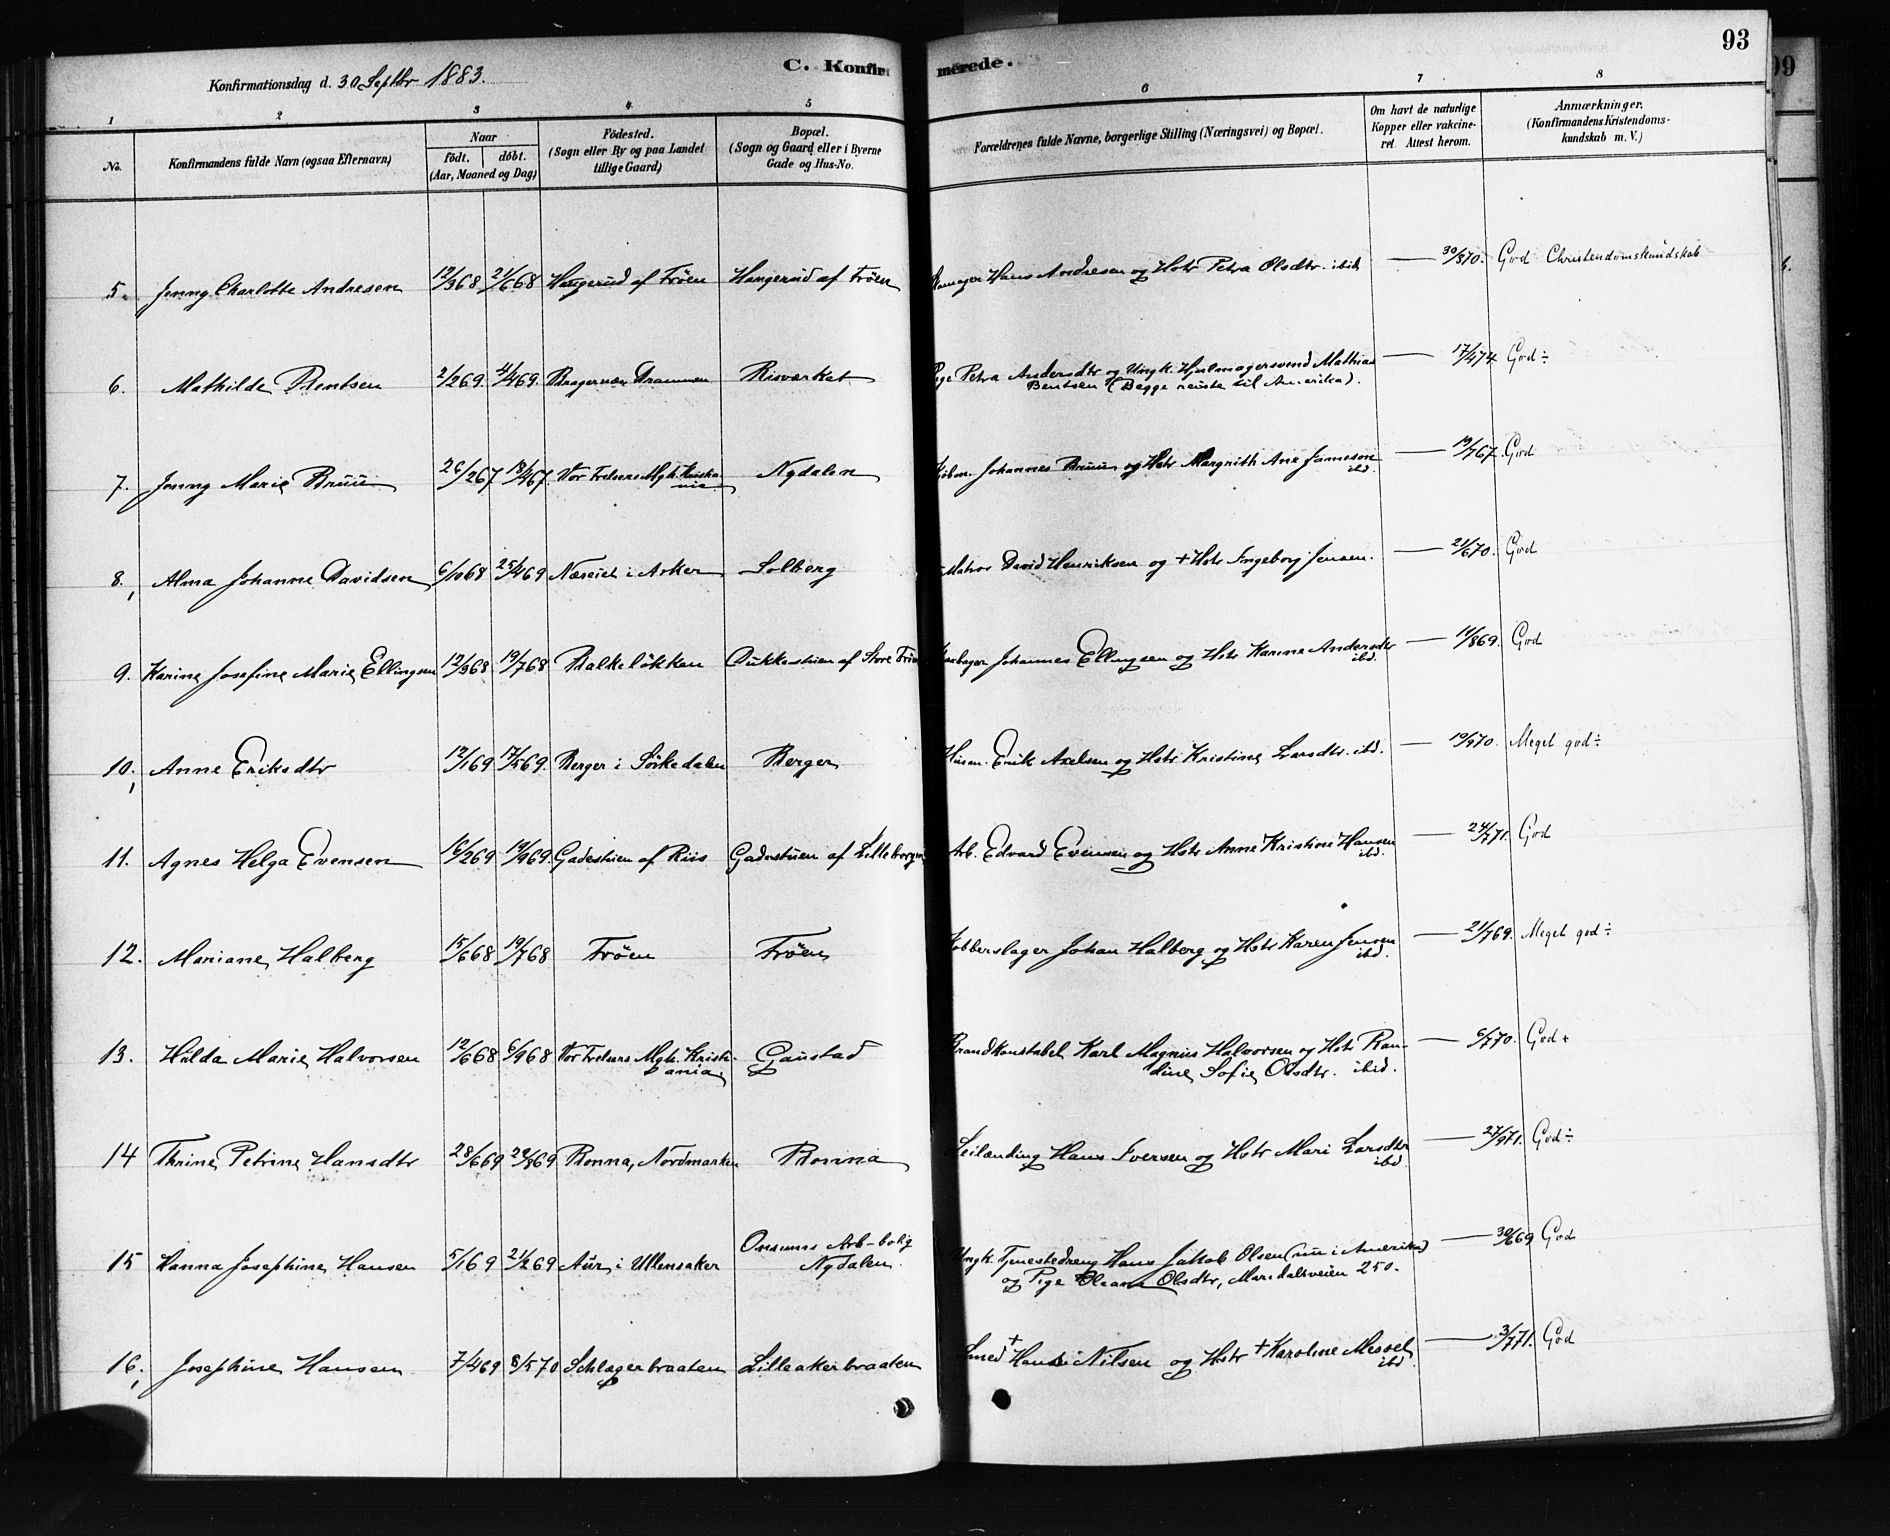 C. Konfirmerede.
93
Konfirmationsdag d. 30 Septbr 1883.
1 2 3 4 5 6 7 8
No. Konfirmandens fulde Navn (ogsaa Efternavn) Naar født. døbt. (Aar, Maaned og Dag) Födested. (Sogn eller By og paa Landet tillige Gaard) Bopæl. (Sogn og Gaard eller i Byerne Gade og Hus-No. Forældrenes fulde Navne, borgerlige Stilling (Næringsvei) og Bopæl. Om havt de naturlige Kopper eller vakcineret. Attest herom. Anmærkninger. (Konfirmandens Kristendomskundskab m. V.)
5. Jenny Charlotte Andresen 12/3 68 21/6 68 Haugerud af Fröen Haugerud af Fröen Hans Andresen og Hstr Petra Olsdtr. ibid. — 30/3 70. God Christendomskundskab
6. Mathilde Bentsen 2/2 69. 4/4 69. Bragernæs Drammen Risværket Pige Petra Andersdtr og Ungk. Hjulmagersvend Mathias
Bentsen (Begge reiste til Amerika). — 17/4 74 God ÷
7. Jenny Marie Bruu 26/2 67 13/4 67. Vor Frelsers Mgh. Kristiania Nydalen Johannes Bruu og Hstr Margrith Ane Jameson ibd. — 19/7 67 God
8. Alma Johanne Davidsen 6/10 68 25/4 69 Næsset i Asker Solberg Matros David Henriksen og + Hstr Ingeborg Jensen. — 21/6 70. God
9. Karine Josefine Marie Ellingsen 12/3 68 19/7 68 Balkeløkken Dukkestuen af Store Fröen Johannes Ellingsen og Hstr Karine Andersdtr ibd. — 11/8 69. God
10. Anne Eriksdtr 12/1 69 17/5 69. Berger i Sörkedalen Berger Husm. Erik Axelsen og Hstr Kristine Larsdtr. ibd. — 19/9 70. Meget god ÷
11. Agnes Helga Evensen 16/2 69 19/9 69. Gadestuen af Riis Gadestuen af Lilleborgen Arb. Edvard Evensen og Hstr Anne Kristine Hansen ibd. — 24/7 71. God
12. Mariane Halberg 15/6 68 19/7 68 Fröen Fröen Kobberslager Johan Halberg og Hstr Karen Jensen ibd. — 21/7 69. Meget god ÷
13. Hulda Marie Halvorsen 12/6 68 6/9 68 Vor Frelsers Mgh. Kristiania Gaustad Brandkonstabel Karl Magnus Halvorsen og Hstr Ran-
dine Sofie Olsdtr. ibid. — 6/7 70. God +
14 Thrine Petrine Hansdtr 28/6 69 29/8 69 Bonna, Nordmarken Bonna Leilænding Hans Iversen og Hstr Mari Larsdtr ibd. — 27/9 71. God ÷
15 Hanna Josephine Hansen 5/1 69 21/2 69 Aur i Ullensaker Onsums Arb-bolig
Nydalen. Ungk. Tjenestedreng Hans Jakob Olsen (nu i Amerika)
og Pige Oleana Olsdtr, Maridalsveien 250. — 30/6 69 God
16. Josephine Hansen 7/4 69 8/5 70 Schlagerbraaten Lilleakerbraaten Smed + Hans Nilsen og Hstr + Karoline Messel ibd. — 3/7 71. God